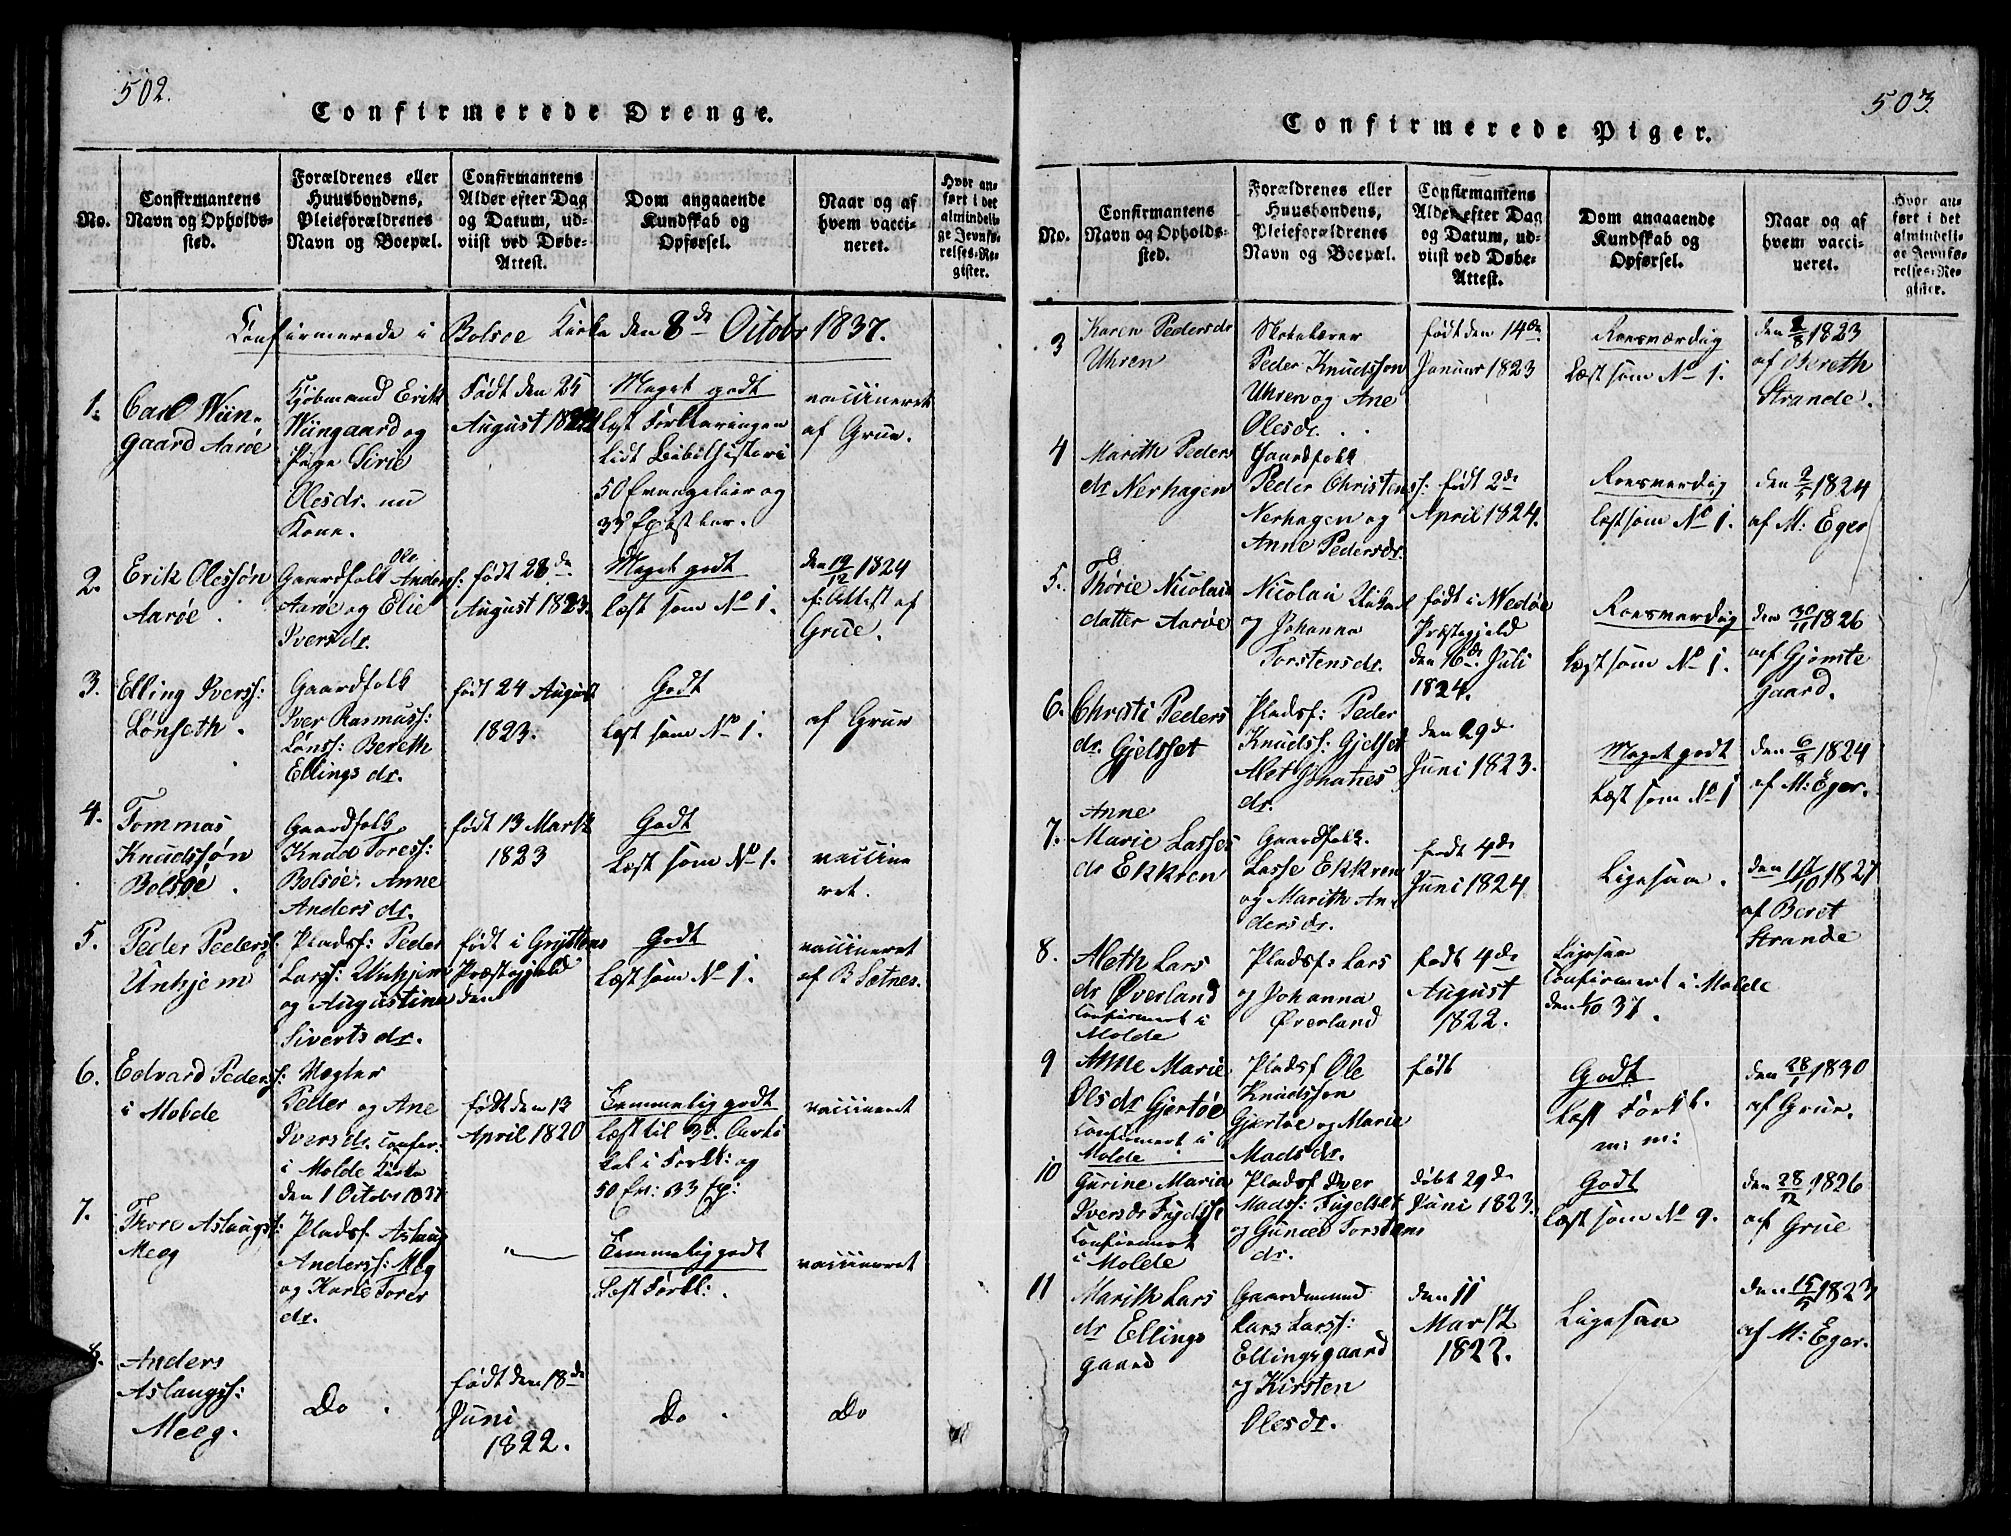 502.
Confirmerede Drenge.
No.
Confirmantens
Navn og Opholds-
sted.
Forældrenes eller
Huusbondens,
Pleieforældrenes
Navn og Boepæl.
Confirmantens
Alder efter Dag
og Datum, ud-
viist ved Døbe-
Attest.
Dom angaaende
Kundskab og
Opførsel.
Naar og af
hvem vacci-
neret.
Hvor an-
ført i det
almindeli-
ge Jevnfø-
relses-Re-
gister.
Confirmerede i Bolsøe Kirke den 8de Octobr 1837.
1.
Carl Wiin-
gaard Aarøe
Kjøbmand Erik
Wiingaard og
Pige Sirie
Olesdr. nu
Kone.
Født den 25
August
Meget godt
læst Forklaringen
lidt Bibelhistori
50 Evangelier og
33 Epistler.
vaccineret
af Grue.
2.
Erik Olessøn
Aarøe.
Gaardfolk Ole Anderss:
Aarøe og Elie
Iversdr.
født 28de
August 1823.
Meget godt
læst som No 1.
den 19/12 1824
f: Attest af
Grue.
3.
Elling Iverss:
Lønseth.
Gaardfolk
Iver Rasmuss:
Lønss: Bereth
Ellingsdr.
født 24 August
1823.
Godt
Læst som No 1.
af Grue
4.
Tommas
Knudssøn
Bolsøe.
Gaardfolk
Knud Toress:
Bolsøe. Anne
Andersdr.
født 13 Martz
1823
Godt
Læst som No 1.
vaccine
ret.
5.
Peder Peders:
Unhjem
Pladsf: Peder
Larss: Unhjem
og Augustine
Sivertsdr.
født i Gryttens
Præstegjeld
den
Godt
Læst som No 1.
vaccineret
af B Sætnes.
6.
Edvard Pederss:
i Molde
Vægter
Peder og Ane
Iversdr. Confir:
i Molde Kirke
den 1 Octobr 1837
født den 13
April 1820
Temmelig godt
Læst til 3d. Arti
kel i Forkl: og
50 Ev: 33 Ep:
vaccineret
7.
Thore Aslaugs:
Meeg
Pladsf. Aslaug
Anderss: Meg
og Karie Tores
dr.
"
Temmelig godt
Læst Forkl:.
vaccineret
8.
Anders
Aslaugss:
Meeg.
Do.
født den 18de
Juni
1822.
Do.
Do
503.
Confirmerede Piger.
No.
Confirmantens
Navn og Opholds-
sted.
Forældrenes eller
Huusbondens,
Pleieforældrenes
Navn og Boepæl.
Confirmantens
Alder efter Dag
og Datum, ud-
viist ved Døbe-
Attest.
Dom angaaende
Kundskab og
Opførsel.
Naar og af
hvem vacci-
neret.
Hvor an-
ført i det
almindeli-
ge Jevnfø-
relses-Re-
gister.
3
Karen Pedersdr
Uhren
Peder Knudsson
Uhren og Ane
Olesdr.
født den 14de
Januar 1823
Roesværdig
Læst som No 1.
den 2/8 1823
af Bereth
Strande.
4
Marith Peders
dr Nerhagen
Gaardfolk
Peder Christenss:
Nerhagen og
Anne Pedersdr.
født 2de
April 1824.
Roesværdig
læst som No 1.
den 2/5 1824
af M: Eger
5.
Thørie Nicolai
datter Aarøe
Nicolai
og Johanna
Torstensdr.
født i Wedøe
Præstegjeld
den 16de Juli
1824.
Roesværdig
Læst som No 1.
den 30/11 1826
af Gjømte
gaard.
6.
Christi Peders
dr. Gjelsset
Pladsf: Peder
Knudss: Gjelset
Alet Johanes
dr.
den 29de
Juni 1823.
Meget godt
Læst som No 1
den 6/8 1824
af M: Eger.
7.
Anne
Marie Lasses
dr Ekkren
Gaardfolk.
Lasse Ekkren
og Marith An
dersdr.
født 4de
Juni 1824
Ligesaa.
1827
af Beret
Strande
8.
Aleth Lars
dr Øverland
Confirmert i
Molde
Pladsf: Lars
og Johanna
Øverland
født 4de
August
1822.
Ligesaa
Confirmert i Molde
den 1/10 37.
9
Anne Marie
Olsdr Gjertøe
Confirmert i
Molde
Pladsf Ole
Knudsson
Gjertøe og Marie
Madsdr.
født
Godt
Læst Forkl.
m: m:
den 28/1 1830
af Grue.
10
Gurine Marie
Iversdr Fugelset
Confirmert
i Molde
Pladsf Iver
Madss: Fugelset
og Guneld Torstens
dr.
døbt 29de
Juni 1823.
Godt
Læst som No 9.
den 28/12 1826
af Grue
11
Marith Lars
dr Ellings
gaard
Gaardmand
Lars Larss:
Ellingsgaard
og Kirsten
Olesdr.
den 11
Martz
1822.
Ligesaa
den 15/5 1823
af M: Eger.